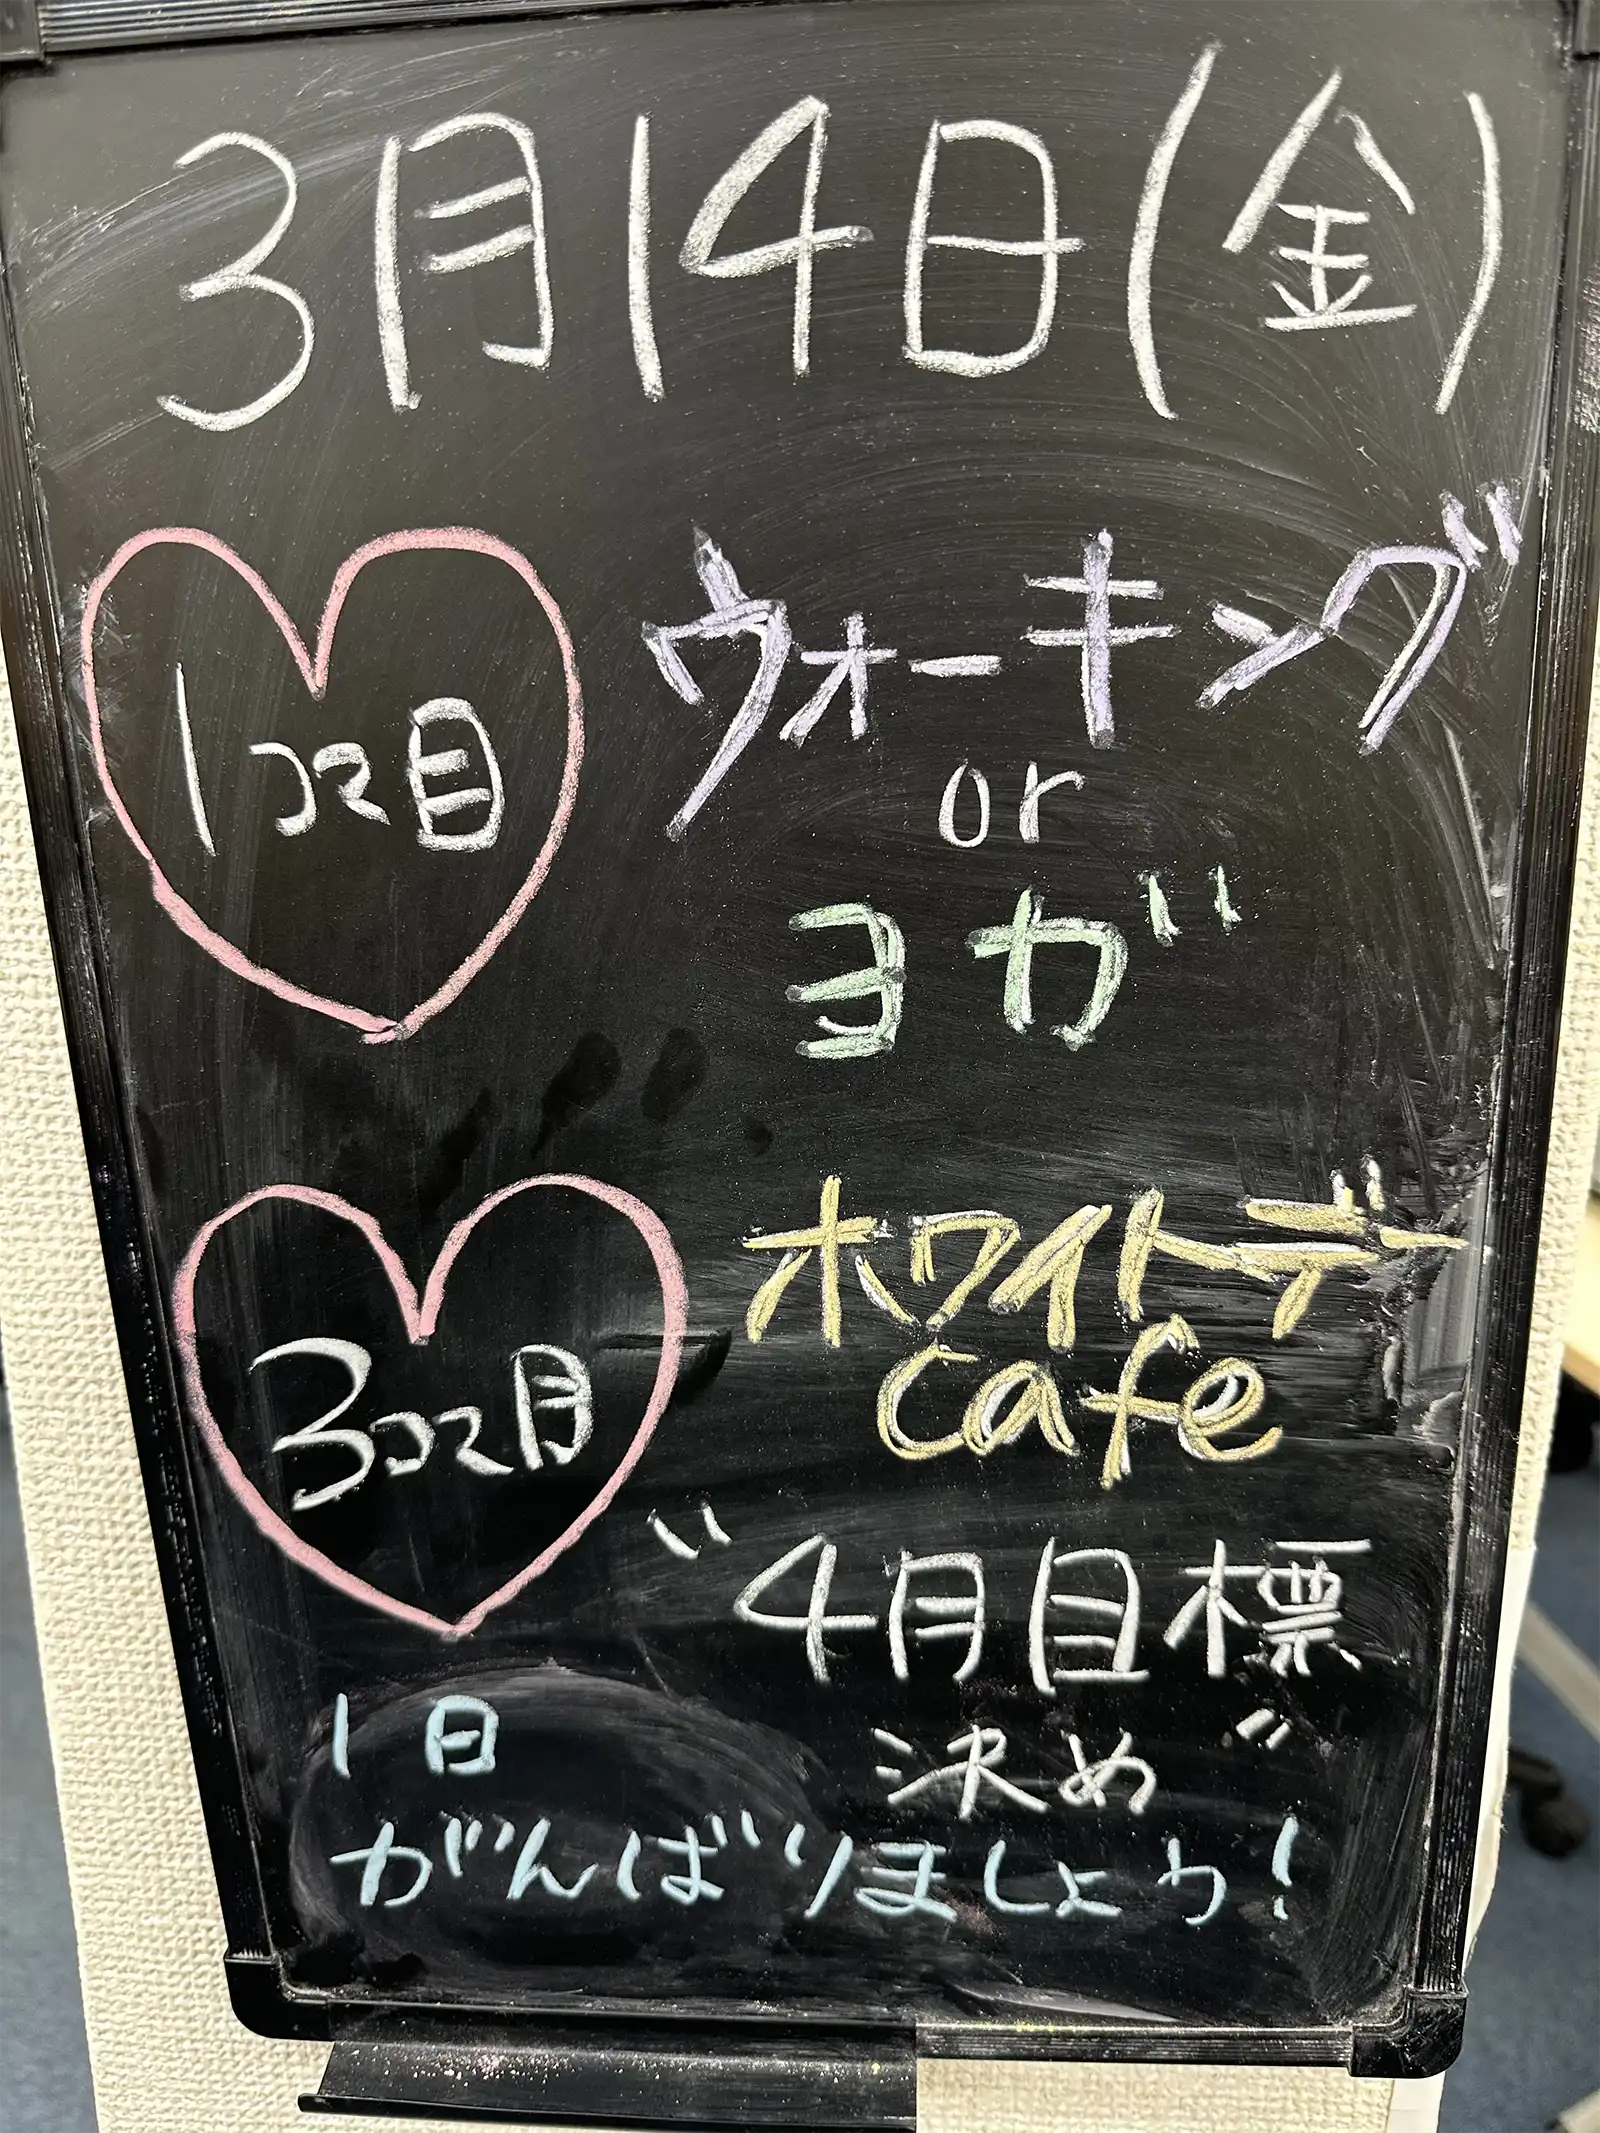 3月14日(金)
1コマ目
ウォーキング
or
ヨガ
3コマ目
ホワイトデー
cafe
"4月目標
決め"
1日
がんばりましょう!